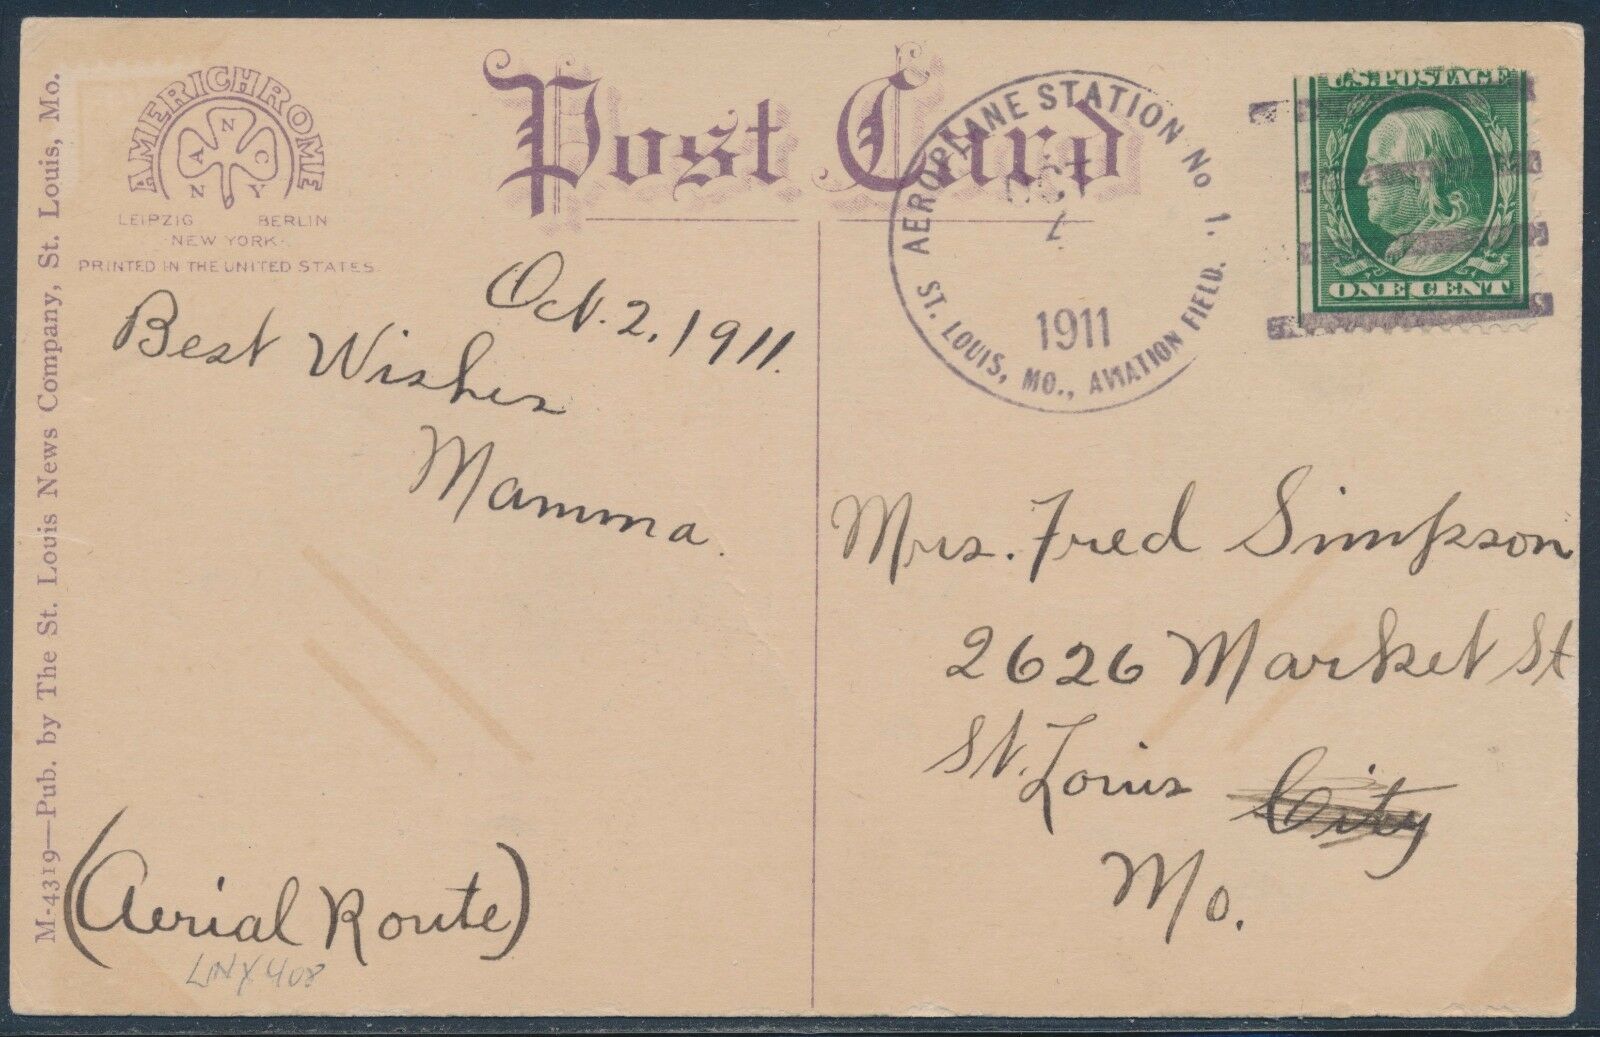 Post Card
AMERICHROME
A N C
N Y
LEIPZIG BERLIN
NEW YORK
PRINTED IN THE UNITED STATES.
M-4319—Pub. by The St. Louis News Company, St. Louis, Mo.
AEROPLANE STATION No 1.
OCT
1911
ST. LOUIS, MO., AVIATION FIELD.
U.S. POSTAGE
ONE CENT
Oct. 2, 1911.
Best Wishes
Mamma.
(Aerial Route)
Mrs. Fred Simpson
2626 Market St
St. Louis City
Mo.